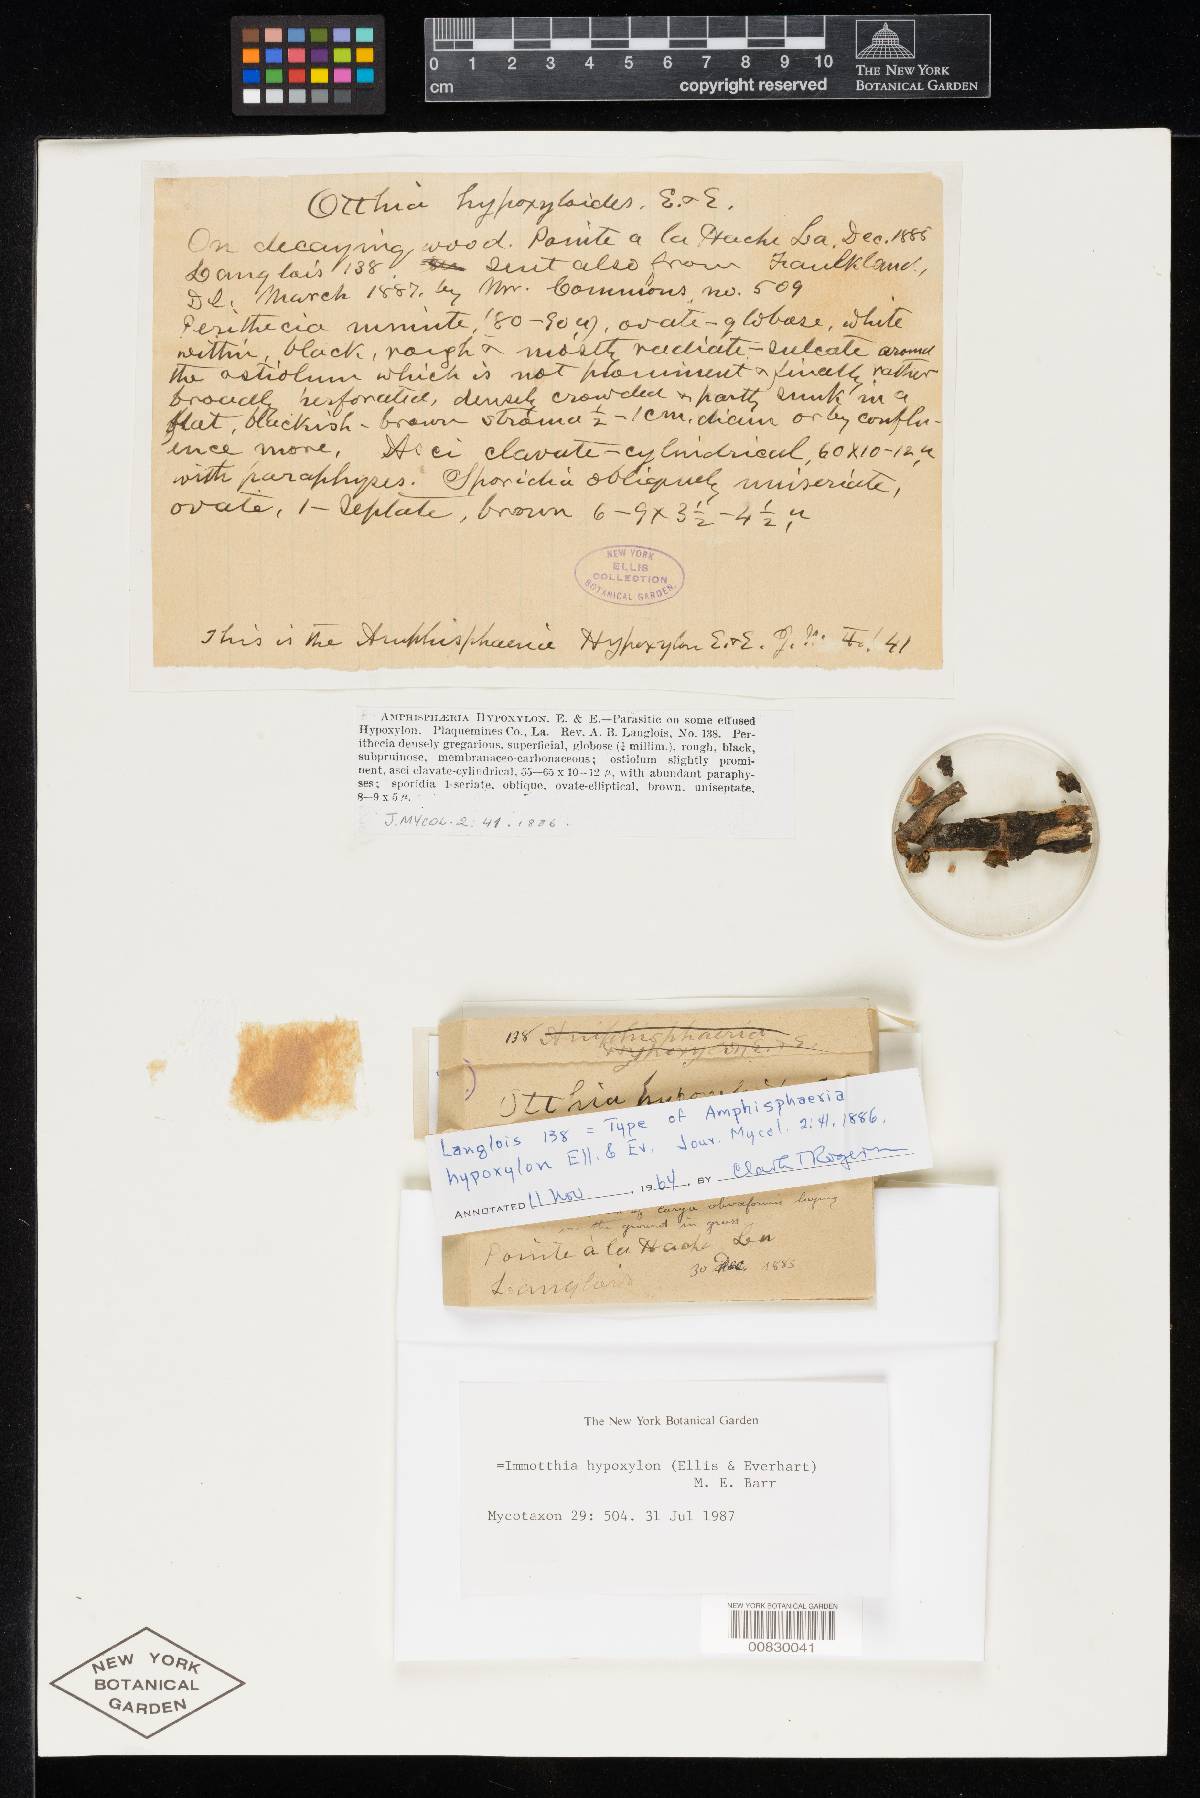 0 1 2 3 4 5 6 7 8 9 10
cm
copyright reserved
THE NEW YORK
BOTANICAL GARDEN
Otthia hypoxyloides. E. & E.
On decaying wood. Pointe a la Hache La. Dec. 1885
Langlois 138 sent also from Faulkland,
Del. March 1887. by Mr. Commons no. 509
Perithecia minute, (80-90µ), ovate-globose, white
within, black, rough & mostly radiate-sulcate around
the ostiolum which is not prominent & finally rather
broadly perforated, densely crowded & partly sunk in a
flat, blackish-brown stroma ½-1cm. diam or by conflu-
ence more. Asci clavate-cylindrical, 60x10-12µ
with paraphyses. Sporidia obliquely uniseriate,
ovate, 1-septate, brown 6-9x3½-4½µ
NEW YORK
ELLIS
COLLECTION
BOTANICAL GARDEN.
This is the Amphisphaeria Hypoxylon E. & E. J. M. II. 41
AMPHISPHÆRIA HYPOXYLON, E. & E.—Parasitic on some effused
Hypoxylon. Plaquemines Co., La. Rev. A. B. Langlois, No. 138. Per-
ithecia densely gregarious, superficial, globose (¼ millim.), rough, black,
subpruinose, membranaceo-carbonaceous; ostiolum slightly promi-
nent, asci clavate-cylindrical, 55—65 x 10—12 µ, with abundant paraphy-
ses; sporidia 1-seriate, oblique, ovate-elliptical, brown, uniseptate,
8—9 x 5 µ.
J. MYCOL. 2: 41. 1886.
138 Amphisphaeria
Hypoxylon E. & E.
Otthia
Langlois 138 = Type of Amphisphaeria
hypoxylon Ell. & Ev. Jour. Mycol. 2:41. 1886.
ANNOTATED 11 Nov, 1964, BY Clark T Rogerson
of Carya olivaeformis laying
on the ground in grass
Pointe à la Hache La
30 Dec. 1885
Langlois
The New York Botanical Garden
=Immotthia hypoxylon (Ellis & Everhart)
M. E. Barr
Mycotaxon 29: 504. 31 Jul 1987
NEW YORK BOTANICAL GARDEN
00830041
NEW YORK
BOTANICAL
GARDEN